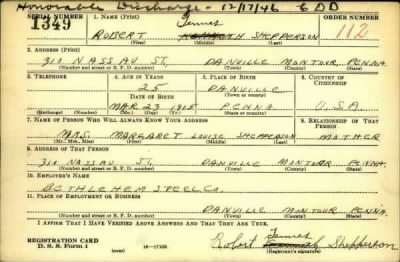 Honorable Discharge - 12/17/46 EDD
SERIAL NUMBER 1. NAME (Print) ORDER NUMBER
James
1349 ROBERT KENNETH SHEPPERSON 112
(First) (Middle) (Last)
2. ADDRESS (Print)
310 NASSAU ST. DANVILLE MONTOUR PENNA.
(Number and street or R. F. D. number) (Town) (County) (State)
3. TELEPHONE 4. AGE IN YEARS 5. PLACE OF BIRTH 6. COUNTRY OF CITIZENSHIP
25 DANVILLE
DATE OF BIRTH (Town or county)
MAR. 23 1915 PENNA U.S.A.
(Exchange) (Number) (Mo.) (Day) (Yr.) (State or country)
7. NAME OF PERSON WHO WILL ALWAYS KNOW YOUR ADDRESS 8. RELATIONSHIP OF THAT PERSON
MRS. MARGARET LOUISE SHEPPERSON MOTHER
(Mr., Mrs., Miss) (First) (Middle) (Last)
9. ADDRESS OF THAT PERSON
310 NASSAU ST. DANVILLE MONTOUR PENNA.
(Number and street or R. F. D. number) (Town) (County) (State)
10. EMPLOYER'S NAME
BETHLEHEM STEEL CO.
11. PLACE OF EMPLOYMENT OR BUSINESS
DANVILLE MONTOUR PENNA.
(Number and street or R. F. D. number) (Town) (County) (State)
I AFFIRM THAT I HAVE VERIFIED ABOVE ANSWERS AND THAT THEY ARE TRUE.
James
REGISTRATION CARD Robert Kenneth Shepperson
D. S. S. Form 1 (over) 16-17105 (Registrant's signature)